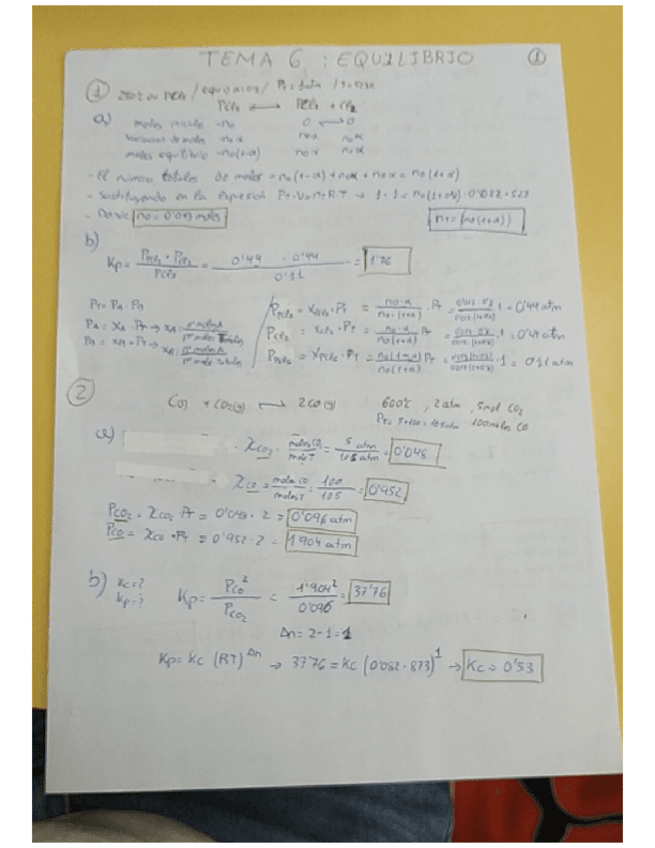 TEMA 6 : EQUILIBRIO ①
① PCl5 / equilibrio / PT = 1atm /
PCl5 ⟷ PCl3 + Cl2
a) moles iniciales -no 0 ⟷ 0
Variacion de moles -noα noα noα
moles equilibrio -no(1-α) noα noα
- El número totales de moles = no(1-α) + noα + noα = no(1+α)
- Sustituyendo en la expresión PT·V=nT·R·T → 1·1 = no(1+α)·0'082·523
- Donde no = 0'013 moles nT = (no(1+α))
b)
Kp = PPCl3 · PCl2 / PPCl5 = 0'44 · 0'44 / 0'11 = 1'76
PT = PA · PB
PA = XA · PT → XA = nº moles A / nº moles Totales
PB = XB · PT → XB = nº moles B / nº moles Totales
PPCl3 = XPCl3 · PT = no·α / no·(1+α) · PT = · 1 = 0'44 atm
PCl2 = XCl2 · PT = no·α / no·(1+α) PT = · 1 = 0'44 atm
PPCl5 = XPCl5 · PT = no(1-α) / no(1+α) PT = · 1 = 0'11 atm
②
C(s) + CO2(g) ⟷ 2CO(g) 600ºC , 2atm , 5mol CO2
PT = 5+100 = 105atm 100moles CO
a) · XCO2 · moles CO2 / moles T = 5 atm / 105 atm = 0'048
XCO = moles CO / moles T = 100 / 105 = 0'952
PCO2 = XCO2 · PT = 0'048 · 2 = 0'096 atm
PCO = XCO · PT = 0'952 · 2 = 1'904 atm
b) Kc=? Kp=? Kp = PCO² / PCO2 = 1'904² / 0'096 = 37'76
Δn = 2-1 = 1
Kp = Kc (RT)^Δn → 37'76 = Kc (0'082 · 873)^1 → Kc = 0'53